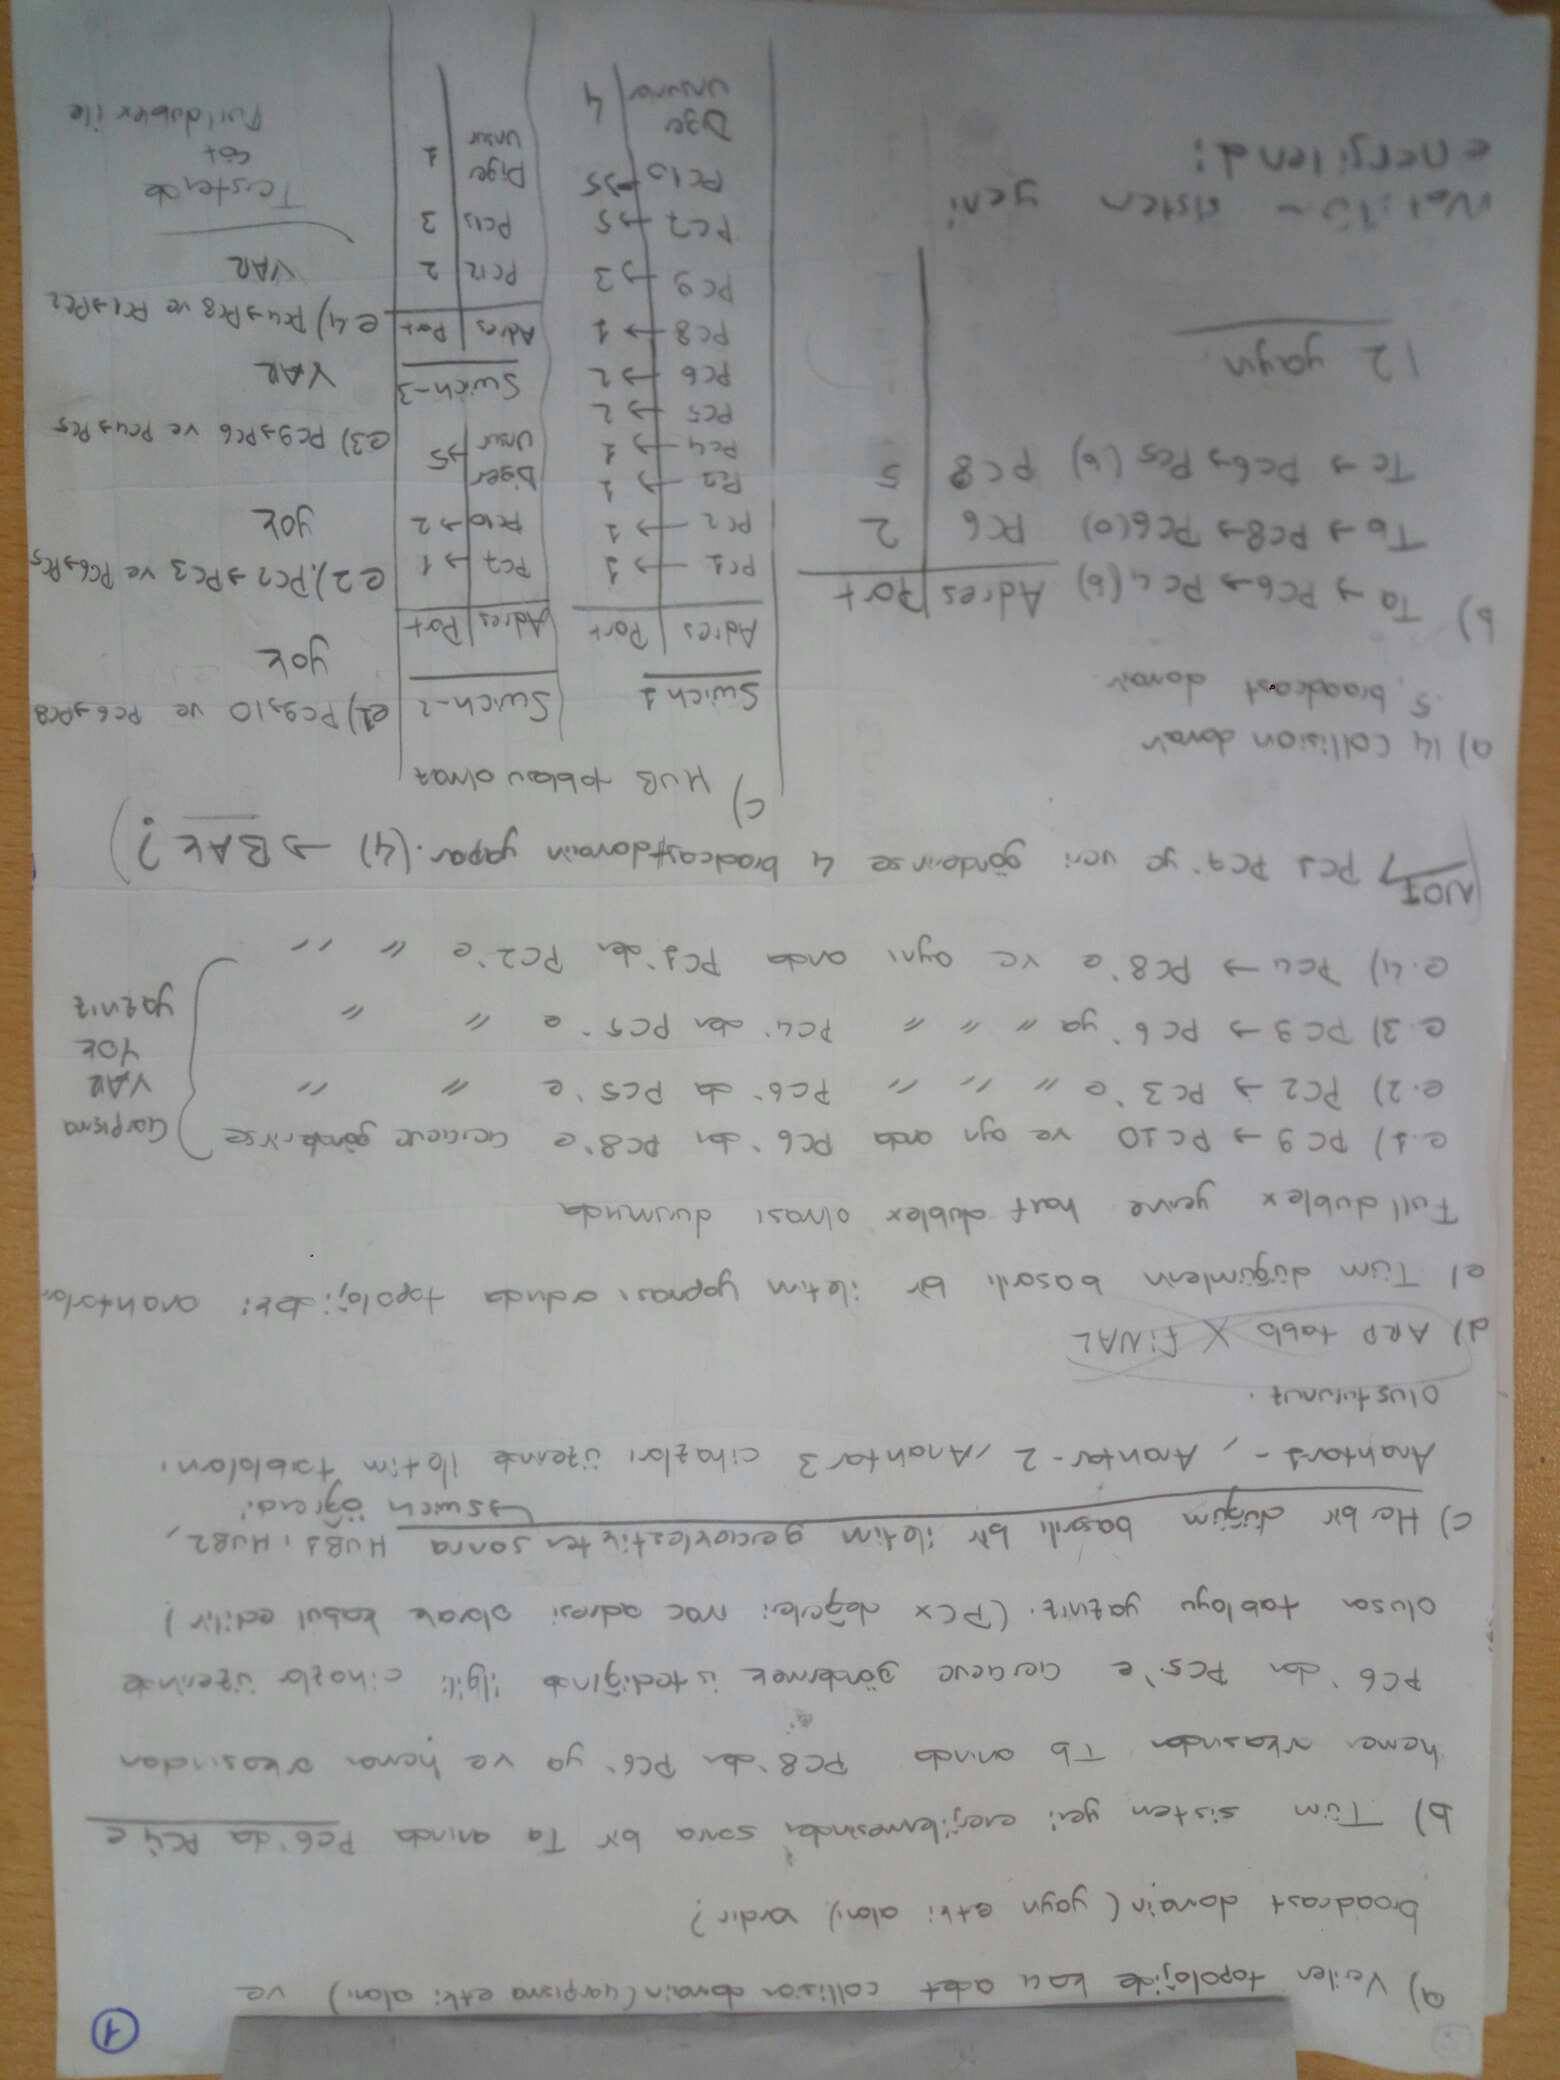 1
a) Verilen topolojide kaç adet collision domain (çarpışma etki alanı) ve
broadcast domain ( yayın etki alanı) vardır?
b) Tüm sistem yeni enerjilenmesinden sonra bir Ta anında PC6'da PC4'e
hemen arkasından Tb anında PC8'den PC6'ya ve hemen arkasından
PC6'dan PC5'e çerçeve göndermek istediğinde ilgili cihazlar üzerinde
oluşan tabloyu yazınız. (PCx değerleri mac adresi olarak kabul edilir)
c) Her bir düğüm başarılı bir iletim gerçekleştikten sonra HUB1, HUB2,
→ swich öğrendi
Anahtar1-, Anahtar-2, Anahtar 3 cihazları üzerinde iletim tablolarını
oluşturunuz.
d) ARP tablo X FİNAL
e) Tüm düğümlerin başarılı bir iletim yapması ardında topolojideki anahtarların
Full dublex yerine half dublex olması durumunda
e.1) PC9 → PC10 ve aynı anda PC6'dan PC8'e çerçeve gönderirse
e.2) PC2 → PC3'e " " " PC6'da PC5'e " "
e.3) PC9 → PC6'ya " " " PC4'den PC5'e " "
e.4) PC4 → PC8'e ve aynı anda PC1'den PC2'e " "
Çarpışma
VAR
YOK
yazınız
NOT → PC1 PC9'ye veri gönderirse 4 broadcast domain yapar. (4) → BAK?
a) 14 Collision domain
5 broadcast domain
b) Ta → PC6 → PC4 (b)
Tb → PC8 → PC6 (0)
Tc → PC6 → PC5 (b)
Adres | Port
PC6 | 2
PC8 | 5
12 yayın
Not: Tüm sistem yeni
enerjilendi
c) HUB tablosu olmaz
Swich 1
Adres | Port
PC1 → 1
PC2 → 1
PC3 → 1
PC4 → 1
PC5 → 2
PC6 → 2
PC8 → 1
PC9 → 3
PC7 → 5
PC10 → 5
Diğer
unsurlar | 4
Swich-2
Adres | Port
PC7 → 1
PC10 → 2
Diğer
unsur → 5
Swich-3
Adres | Port
PC12 | 2
PC13 | 3
Diğer
unsur | 1
e1) PC9→10 ve PC6→PC8
yok
e2). PC2 → PC3 ve PC6→PC5
yok
e3) PC9→PC6 ve PC4→PC5
VAR
e4) PC4→PC8 ve PC1→PC2
VAR
Tersten de
çöz
Full dublex ile